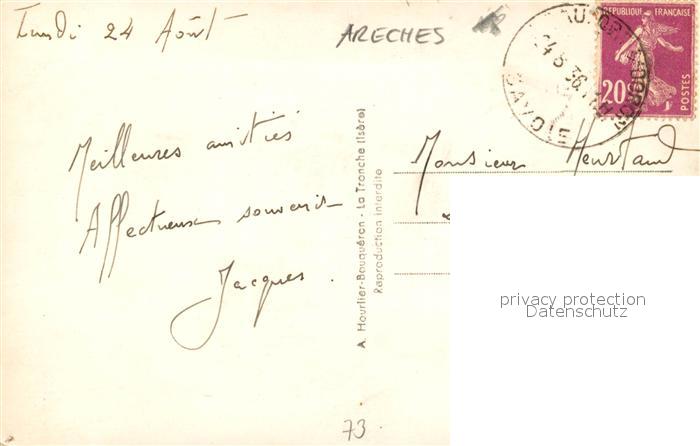 Lundi 24 Août
ARECHES
RÉPUBLIQUE FRANÇAISE
20c
POSTES
24-8 36
SAVOIE
Meilleures amitiés
Affectueux souvenir
Jacques.
Monsieur
A. Hourlier-Bouquéron - La Tronche (Isère)
Reproduction interdite
privacy protection
Datenschutz
73